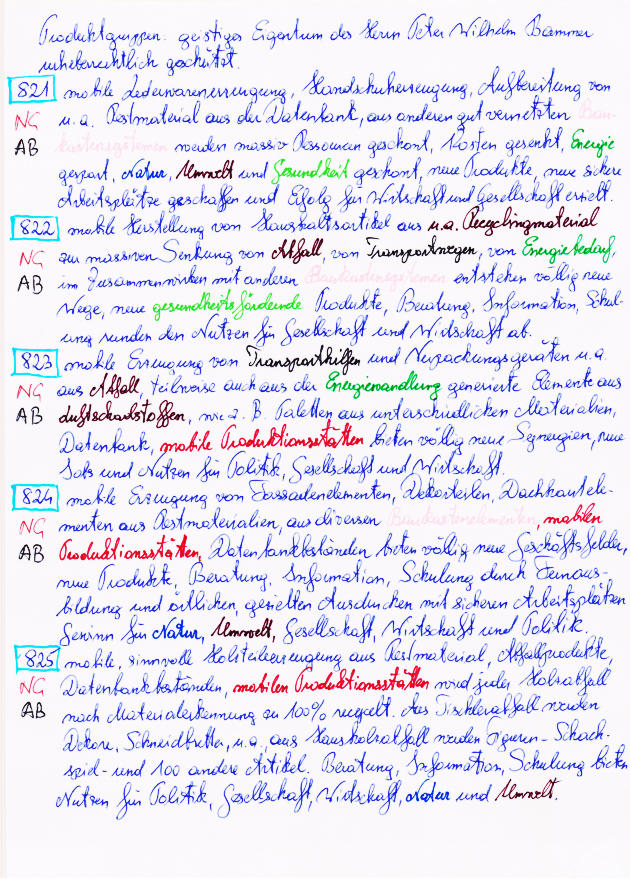 Produktgruppen: geistiges Eigentum des Herrn Peter Wilhelm Bammer
urheberrechtlich geschützt.
821 mobile Lederwarenerzeugung, Handschuherzeugung, Aufbereitung von
NG u.a. Restmaterial aus der Datenbank, aus anderen gut vernetzten Bau-
AB kastensystemen werden massiv Ressourcen geschont, Kosten gesenkt, Energie
gespart, Natur, Umwelt und Gesundheit geschont, neue Produkte, neue sichere
Arbeitsplätze geschaffen und Erfolg für Wirtschaft und Gesellschaft erzielt.
822 mobile Herstellung von Haushaltsartikel aus u.a. Recyclingmaterial
NG zur massiven Senkung von Abfall, von Transportwegen, von Energiebedarf,
AB im Zusammenwirken mit anderen Baukastensystemen entstehen völlig neue
Wege, neue gesundheitsfördernde Produkte, Beratung, Information, Schul-
ung runden den Nutzen für Gesellschaft und Wirtschaft ab.
823 mobile Erzeugung von Transporthilfen und Verpackungsgeräten u.a.
NG aus Abfall, teilweise auch aus der Energiewandlung generierte Elemente aus
AB Luftschadstoffen, wie z.B. Paletten aus unterschiedlichen Materialien,
Datenbank, mobile Produktionsstätten bieten völlig neue Synergien, neue
Jobs und Nutzen für Politik, Gesellschaft und Wirtschaft.
824 mobile Erzeugung von Fassadenelementen, Dekorteilen, Dachhautele-
NG menten aus Restmaterialien, aus diversen Baukastenelementen, mobilen
AB Produktionsstätten, Datenbankbeständen bieten völlig neue Geschäftsfelder,
neue Produkte, Beratung, Information, Schulung durch Fernaus-
bildung und örtlichen, gezielten Ausdrucken mit sicheren Arbeitsplätzen
Gewinn für Natur, Umwelt, Gesellschaft, Wirtschaft und Politik.
825 mobile, sinnvolle Holzteilerzeugung aus Restmaterial, Abfallprodukte,
NG Datenbankbeständen, mobilen Produktionsstätten wird jeder Holzabfall
AB nach Materialerkennung zu 100% recycelt. Aus Tischlerabfall werden
Dekore, Schneidbretter, u.a., aus Hausholzabfall werden Figuren- Schach-
spiel- und 100 andere Artikel. Beratung, Information, Schulung bieten
Nutzen für Politik, Gesellschaft, Wirtschaft, Natur und Umwelt.